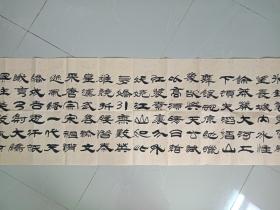 城內外惟
餘莽莽大河上
下頓失滔滔山
舞銀蛇原馳蠟
象欲與天公試
比高須晴日看
紅裝素裹分外
妖嬈江山如此
多嬌引無數英
雄競折腰惜秦
皇漢武略輸文
采唐宗宋祖稍
遜風騷一代天
驕成吉思汗只
識彎弓射大雕
俱往矣